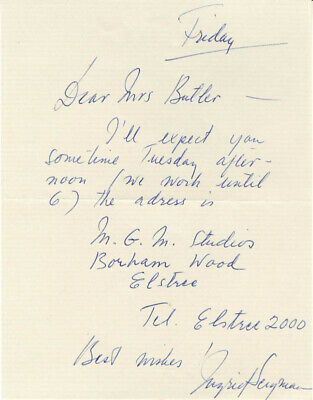 Friday
Dear Mrs Butler —
I'll expect you
sometime Tuesday after-
noon (we work until
6) the adress is
M. G. M. Studios
Borham Wood
Elstree
Tel. Elstree 2000
Best wishes
Ingrid Bergman